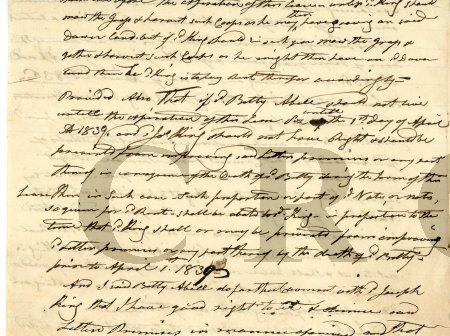 the expiration of this Lease
mow the grass & harvest such Crops as he may have growing on said
then
down Land out of s.d King should in such year mow the grass &
gather & harvest such Crops as he might then have on s.d down
Land then he s.d King is to pay Rent therefor accordingly =
Provided Also That if s.d Betty Abell should not live
untill the expiration of this Lease the 1st day of April
AD 1839, and s.d Jos. King should not have Right & should be
prevented from improving said Letten premises or any part
thereof in consequence of the Death of s.d Betty during the term of this
Lease, Then in such case such proportion or part of s.d Note or notes,
so given for s.d Rent shall be abated to s.d King in proportion to the
time that s.d King shall or may be prevented from improving
s.d Letten premises or any part thereof by the death of s.d Betty
prior to April 1. 1839
And I said Betty Abell do further covenant with s.d Joseph
King that I have good right to let & demise said
Letten Premises in manner aforesaid and that
CR